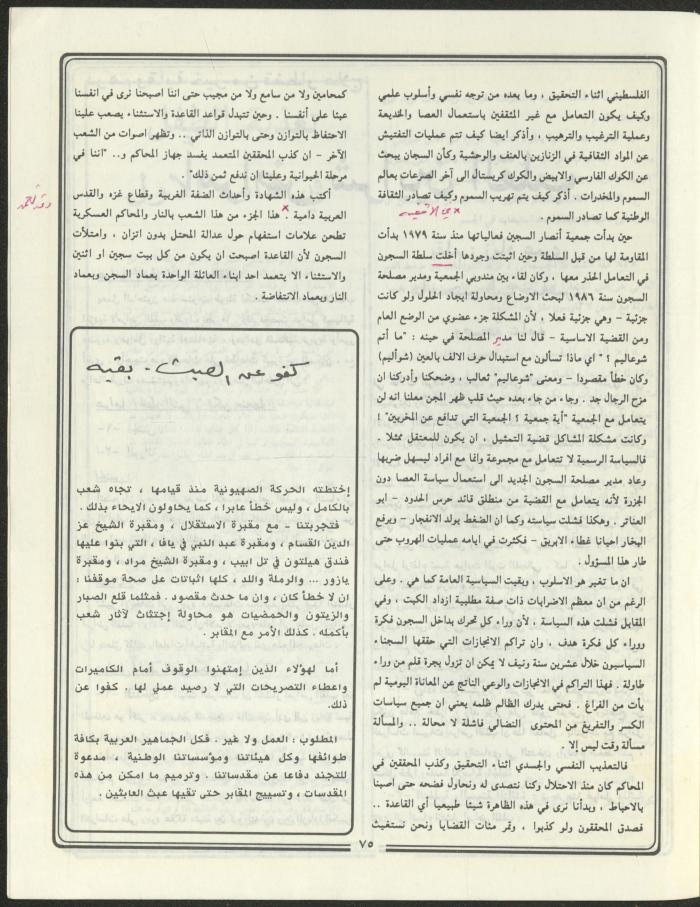 الفلسطيني اثناء التحقيق ، وما يعده من توجه نفسي وأسلوب علمي
وكيف يكون التعامل مع غير المثقفين باستعمال العصا والخديعة
وعملية الترغيب والترهيب ، وأذكر ايضا كيف تتم عمليات التفتيش
عن المواد الثقافية في الزنازين بالعنف والوحشية وكأن السجان يبحث
عن الكوك الفارسي والابيض والكوك كريستال الى آخر الصرعات بعالم
السموم والمخدرات . أذكر كيف يتم تهريب السموم وكيف تصادر الثقافة
الوطنية كما تصادر السموم .
حين بدأت جمعية أنصار السجين فعالياتها منذ سنة ١٩٧٩ بدأت
المقاومة لها من قبل السلطة وحين اثبتت وجودها أخلت سلطة السجون
في التعامل الحذر معها ، وكان لقاء بين مندوبي الجمعية ومدير مصلحة
السجون سنة ١٩٨٦ لبحث الاوضاع ومحاولة ايجاد الحلول ولو كانت
جزئية - وهي جزئية فعلا ، لأن المشكلة جزء عضوي من الوضع العام
ومن القضية الاساسية - قال لنا مدير المصلحة في حينه : "ما أتم
شوعاليم ؟ " اي ماذا تسألون مع استبدال حرف الالف بالعين (شوأليم)
وكان خطأ مقصودا - ومعنى "شوعاليم" ثعالب ، وضحكنا وأدركنا ان
مزح الرجال جد . وجاء من جاء بعده حيث قلب ظهر المجن معلنا انه لن
يتعامل مع الجمعية "أية جمعية ؟ الجمعية التي تدافع عن المخربين" !
وكانت مشكلة المشاكل قضية التمثيل ، ان يكون للمعتقل ممثلا .
فالسياسة الرسمية لا تتعامل مع مجموعة وانما مع افراد ليسهل ضربها
وعاد مدير مصلحة السجون الجديد الى استعمال سياسة العصا دون
الجزرة لأنه يتعامل مع القضية من منطلق قائد حرس الحدود - ابو
العناتر . وهكذا فشلت سياسته وكما ان الضغط يولد الانفجار - ويرفع
البخار احيانا غطاء الابريق - فكثرت في ايامه عمليات الهروب حتى
طار هذا المسؤول .
ان ما تغير هو الاسلوب ، وبقيت السياسية العامة كما هي . وعلى
الرغم من ان معظم الاضرابات ذات صفة مطلبية ازداد الكبت ، وفي
المقابل فشلت هذه السياسة ، لأن وراء كل تحرك بداخل السجون فكرة
ووراء كل فكرة هدف ، وان تراكم الانجازات التي حققها السجناء
السياسيون خلال عشرين سنة ونيف لا يمكن ان تزول بجرة قلم من وراء
طاولة . فهذا التراكم في الانجازات والوعي الناتج عن المعاناة اليومية لم
يأت من الفراغ . فحتى يدرك الظالم ظلمه يعني ان جميع سياسات
الكسر والتفريغ من المحتوى النضالي فاشلة لا محالة .. والمسألة
مسألة وقت ليس إلا .
فالتعذيب النفسي والجسدي اثناء التحقيق وكذب المحققين في
المحاكم كان منذ الاحتلال وكنا نتصدى له ونحاول فضحه حتى اصبنا
بالاحباط ، وبدأنا نرى في هذه الظاهرة شيئا طبيعيا أي القاعدة ..
فصدق المحققون ولو كذبوا ، وتمر مئات القضايا ونحن نستغيث
كمحامين ولا من سامع ولا من مجيب حتى اننا اصبحنا نرى في انفسنا
عبئا على أنفسنا . وحين تتبدل قواعد القاعدة والاستثناء يصعب علينا
الاحتفاظ بالتوازن وحتى بالتوازن الذاتي .. وتظهر اصوات من الشعب
الآخر - ان كذب المحققين المتعمد يفسد جهاز المحاكم و.. "اننا في
مرحلة الحيوانية وعلينا ان ندفع ثمن ذلك" .
أكتب هذه الشهادة وأحداث الضفة الغربية وقطاع غزه والقدس
العربية دامية . هذا الجزء من هذا الشعب بالنار والمحاكم العسكرية
تطحن علامات استفهام حول عدالة المحتل بدون اتزان ، وامتلأت
السجون لأن القاعدة اصبحت ان يكون من كل بيت سجين او اثنين
والاستثناء الا يتعمد احد ابناء العائلة الواحدة بعماد السجن وبعماد
النار وبعماد الانتفاضة .
كفو عن العبث - بقيه
إختطته الحركة الصهيونية منذ قيامها ، تجاه شعب
بالكامل ، وليس خطأ عابرا ، كما يحاولون الايحاء بذلك .
فتجربتنا - مع مقبرة الاستقلال ، ومقبرة الشيخ عز
الدين القسام ، ومقبرة عبد النبي في يافا ، التي بنوا عليها
فندق هيلتون في تل ابيب ، ومقبرة الشيخ مراد ، ومقبرة
يازور ... والرملة واللد ، كلها اثباتات على صحة موقفنا :
ان لا خطأ كان ، وان ما حدث مقصود . فمثلما قلع الصبار
والزيتون والحمضيات هو محاولة إجتثاث لآثار شعب
بأكمله . كذلك الأمر مع المقابر .
أما لهؤلاء الذين إمتهنوا الوقوف أمام الكاميرات
واعطاء التصريحات التي لا رصيد عملي لها . كفوا عن
ذلك .
المطلوب : العمل ولا غير . فكل الجماهير العربية بكافة
طوائفها وكل هيئاتنا ومؤسساتنا الوطنية ، مدعوة
للتجند دفاعا عن مقدساتنا . وترميم ما امكن من هذه
المقدسات ، وتسييج المقابر حتى تقيها عبث العابثين .
٧٥